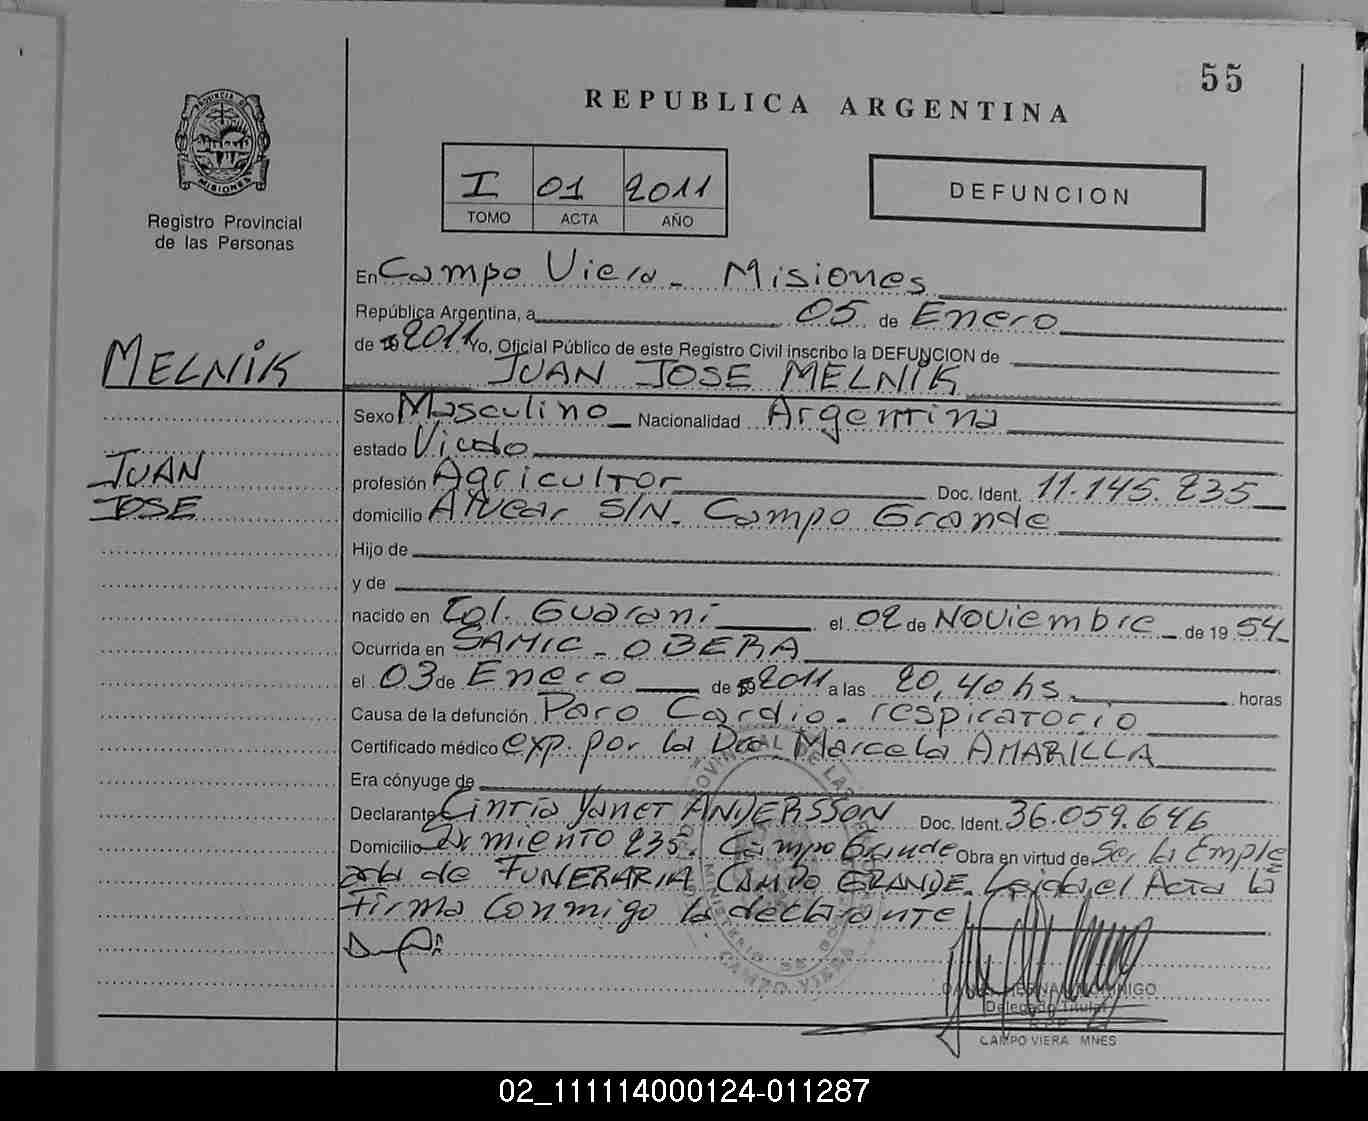 55
REPUBLICA ARGENTINA
PROVINCIA DE
MISIONES
Registro Provincial
de las Personas
I 01 2011
TOMO ACTA AÑO
DEFUNCION
En Campo Viera - Misiones
República Argentina, a 05 de Enero
de 19 2011 Yo, Oficial Público de este Registro Civil inscribo la DEFUNCION de
MELNIK
JUAN JOSE MELNIK
Sexo Masculino Nacionalidad Argentina
estado Viudo
JUAN
profesión Agricultor Doc. Ident. 11.145.235
JOSE
domicilio Alvear S/N. Campo Grande
Hijo de
y de
nacido en Col. Guaraní el 02 de Noviembre de 19 54
Ocurrida en SAMIC - OBERA
el 03 de Enero de 19 2011 a las 20,40 hs. horas
Causa de la defunción Paro Cardio - respiratorio
Certificado médico exp. por la Dra Marcela AMARILLA
Era cónyuge de
Declarante Cintia Yanet ANDERSSON Doc. Ident. 36.059.646
Domicilio 235. Campo Grande Obra en virtud de Ser la Emple
ada de FUNERARIA CAMPO GRANDE. Leida el Acta la
Firma Conmigo la declarante
Delegado Titular
CAMPO VIERA MNES
02_111114000124-011287